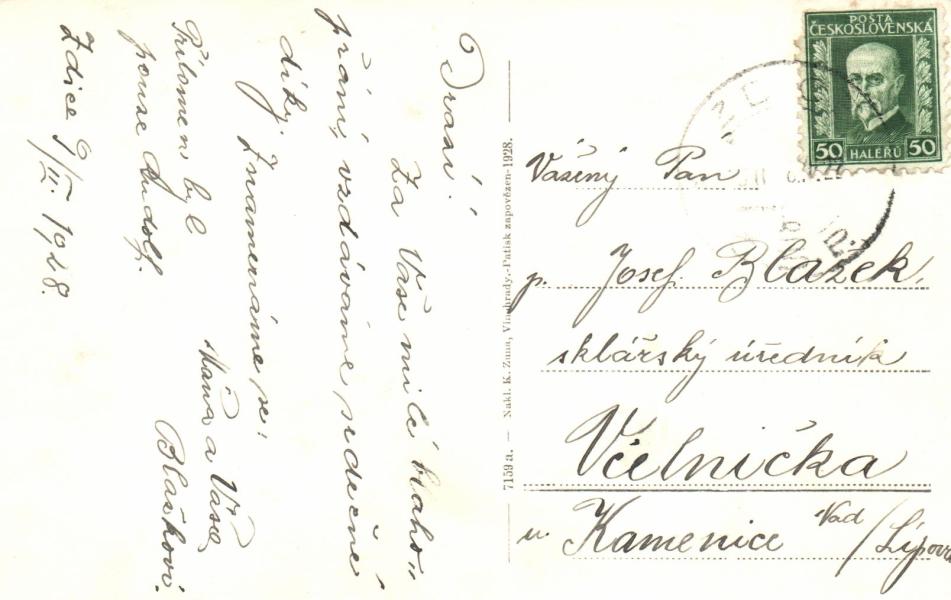 Drazí!
Za Vaše milé blaho-
přání, vzdáváme srdečné
díky. Znamenáme se:
Máňa a Váša
Blažkovi.
Přítomen byl
pouze Rudolf.
Zdice 9/II. 1928.
7159 a. — Nakl. K. Zuna, Vinohrady.-Patisk zapovězen-1928.
POŠTA
ČESKOSLOVENSKÁ
50 HALÉŘŮ 50
Vážený Pan
p. Josef Blažek,
sklářský úředník
Včelnička
u Kamenice nad/Lipou